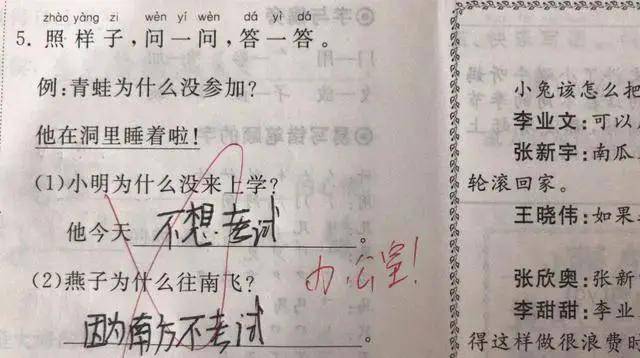 zhào yàng zi wèn yí wèn dá yì dá
5. 照样子,问一问,答一答。
例:青蛙为什么没参加?
他在洞里睡着啦!
(1)小明为什么没来上学?
他今天 不想考试 。
(2)燕子为什么往南飞?
办公室!
因为南方不考试 。
小兔该怎么把
李业文:可以
张新宇:南瓜
轮滚回家。
王晓伟:如果
张欣奥:张新
李甜甜:李业
得这样做很浪费时